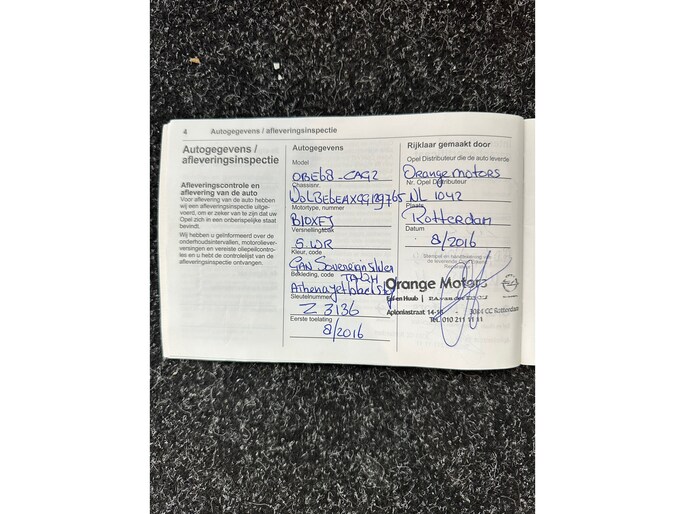 4 Autogegevens / afleveringsinspectie
Autogegevens /
afleveringsinspectie
Afleveringscontrole en
aflevering van de auto
Voor aflevering van de auto hebben
wij een afleveringsinspectie uitge-
voerd, om er zeker van te zijn dat uw
Opel zich in een onberispelijke staat
bevindt.
Wij hebben u geïnformeerd over de
onderhoudsintervallen, motoroliever-
versingen en vereiste oliepeilcontro-
les en u hebt de controlelijst van de
afleveringsinspectie ontvangen.
Autogegevens
Model
0BE68-CAG2
Chassisnr.
Motortype, nummer
B10XFJ
Versnellingsbak
5.WR
Kleur, code
GAN Sovereign silver
Bekleding, code
Sleutelnummer
Z 3136
Eerste toelating
8/2016
Rijklaar gemaakt door
Opel Distributeur die de auto leverde
Orange motors
Nr. Opel Distributeur
NL 1042
Plaats
Rotterdam
Datum
8/2016
Orange Motors
Aploniastraat 14-18 - 3084 CC Rotterdam
Tel. 010 211 11 11